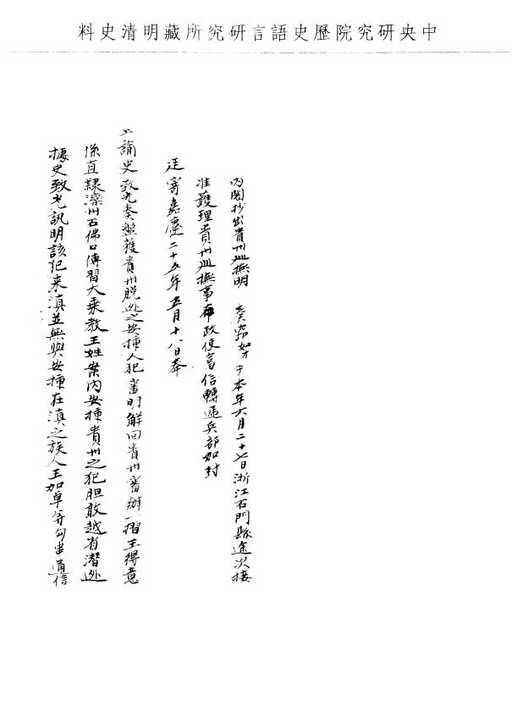 中央研究院歷史語言研究所藏明清史料
內閣抄出貴州巡撫明 奏竊奴才于本年六月二十七日浙江石門縣途次接
准護理貴州巡撫事布政使富信轉遞兵部加封
廷寄嘉慶二十五年五月十八日奉
上諭史致光奏盤獲貴州脫逃之安插人犯審明解回貴州審辦一摺王得意
係直隸灤州石佛口傳習大乘教王姓案內安插貴州之犯胆敢越省潛逃
據史致光訊明該犯來滇並無與安插在滇之族人王加卓等勾串通信